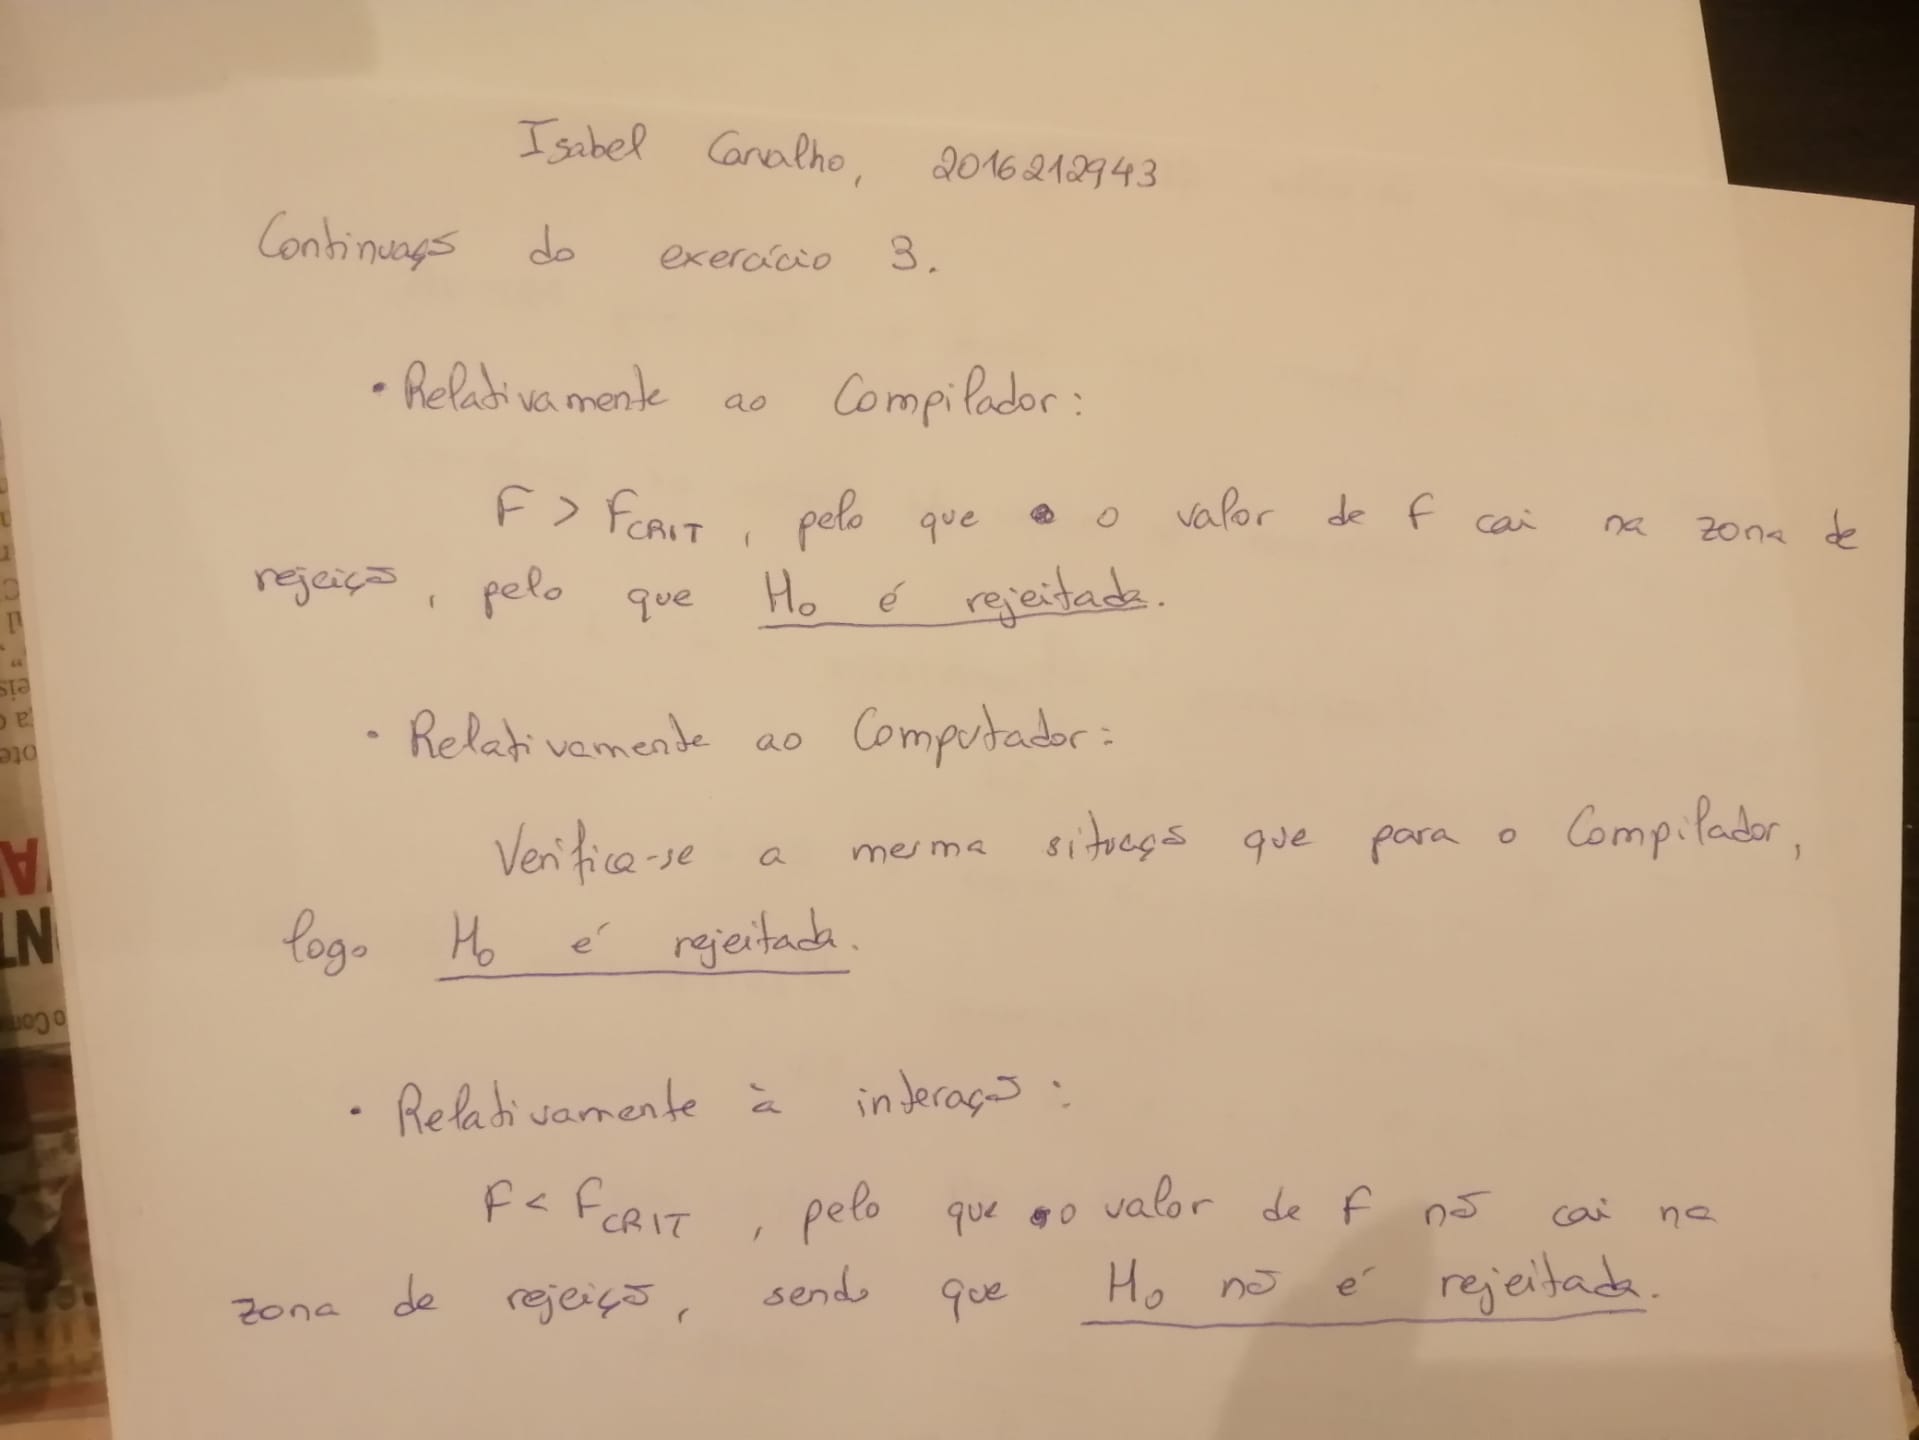 Isabel Carvalho, 2016212943
Continuação do exercício 3.
• Relativamente ao Compilador:
F > FCRIT, pelo que o valor de F cai na zona de
rejeição, pelo que H0 é rejeitada.
• Relativamente ao Computador:
Verifica-se a mesma situação que para o Compilador,
logo H0 é rejeitada.
• Relativamente à interação:
F < FCRIT, pelo que o valor de F não cai na
zona de rejeição, sendo que H0 não é rejeitada.